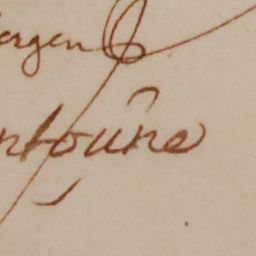 ergen
ntoine